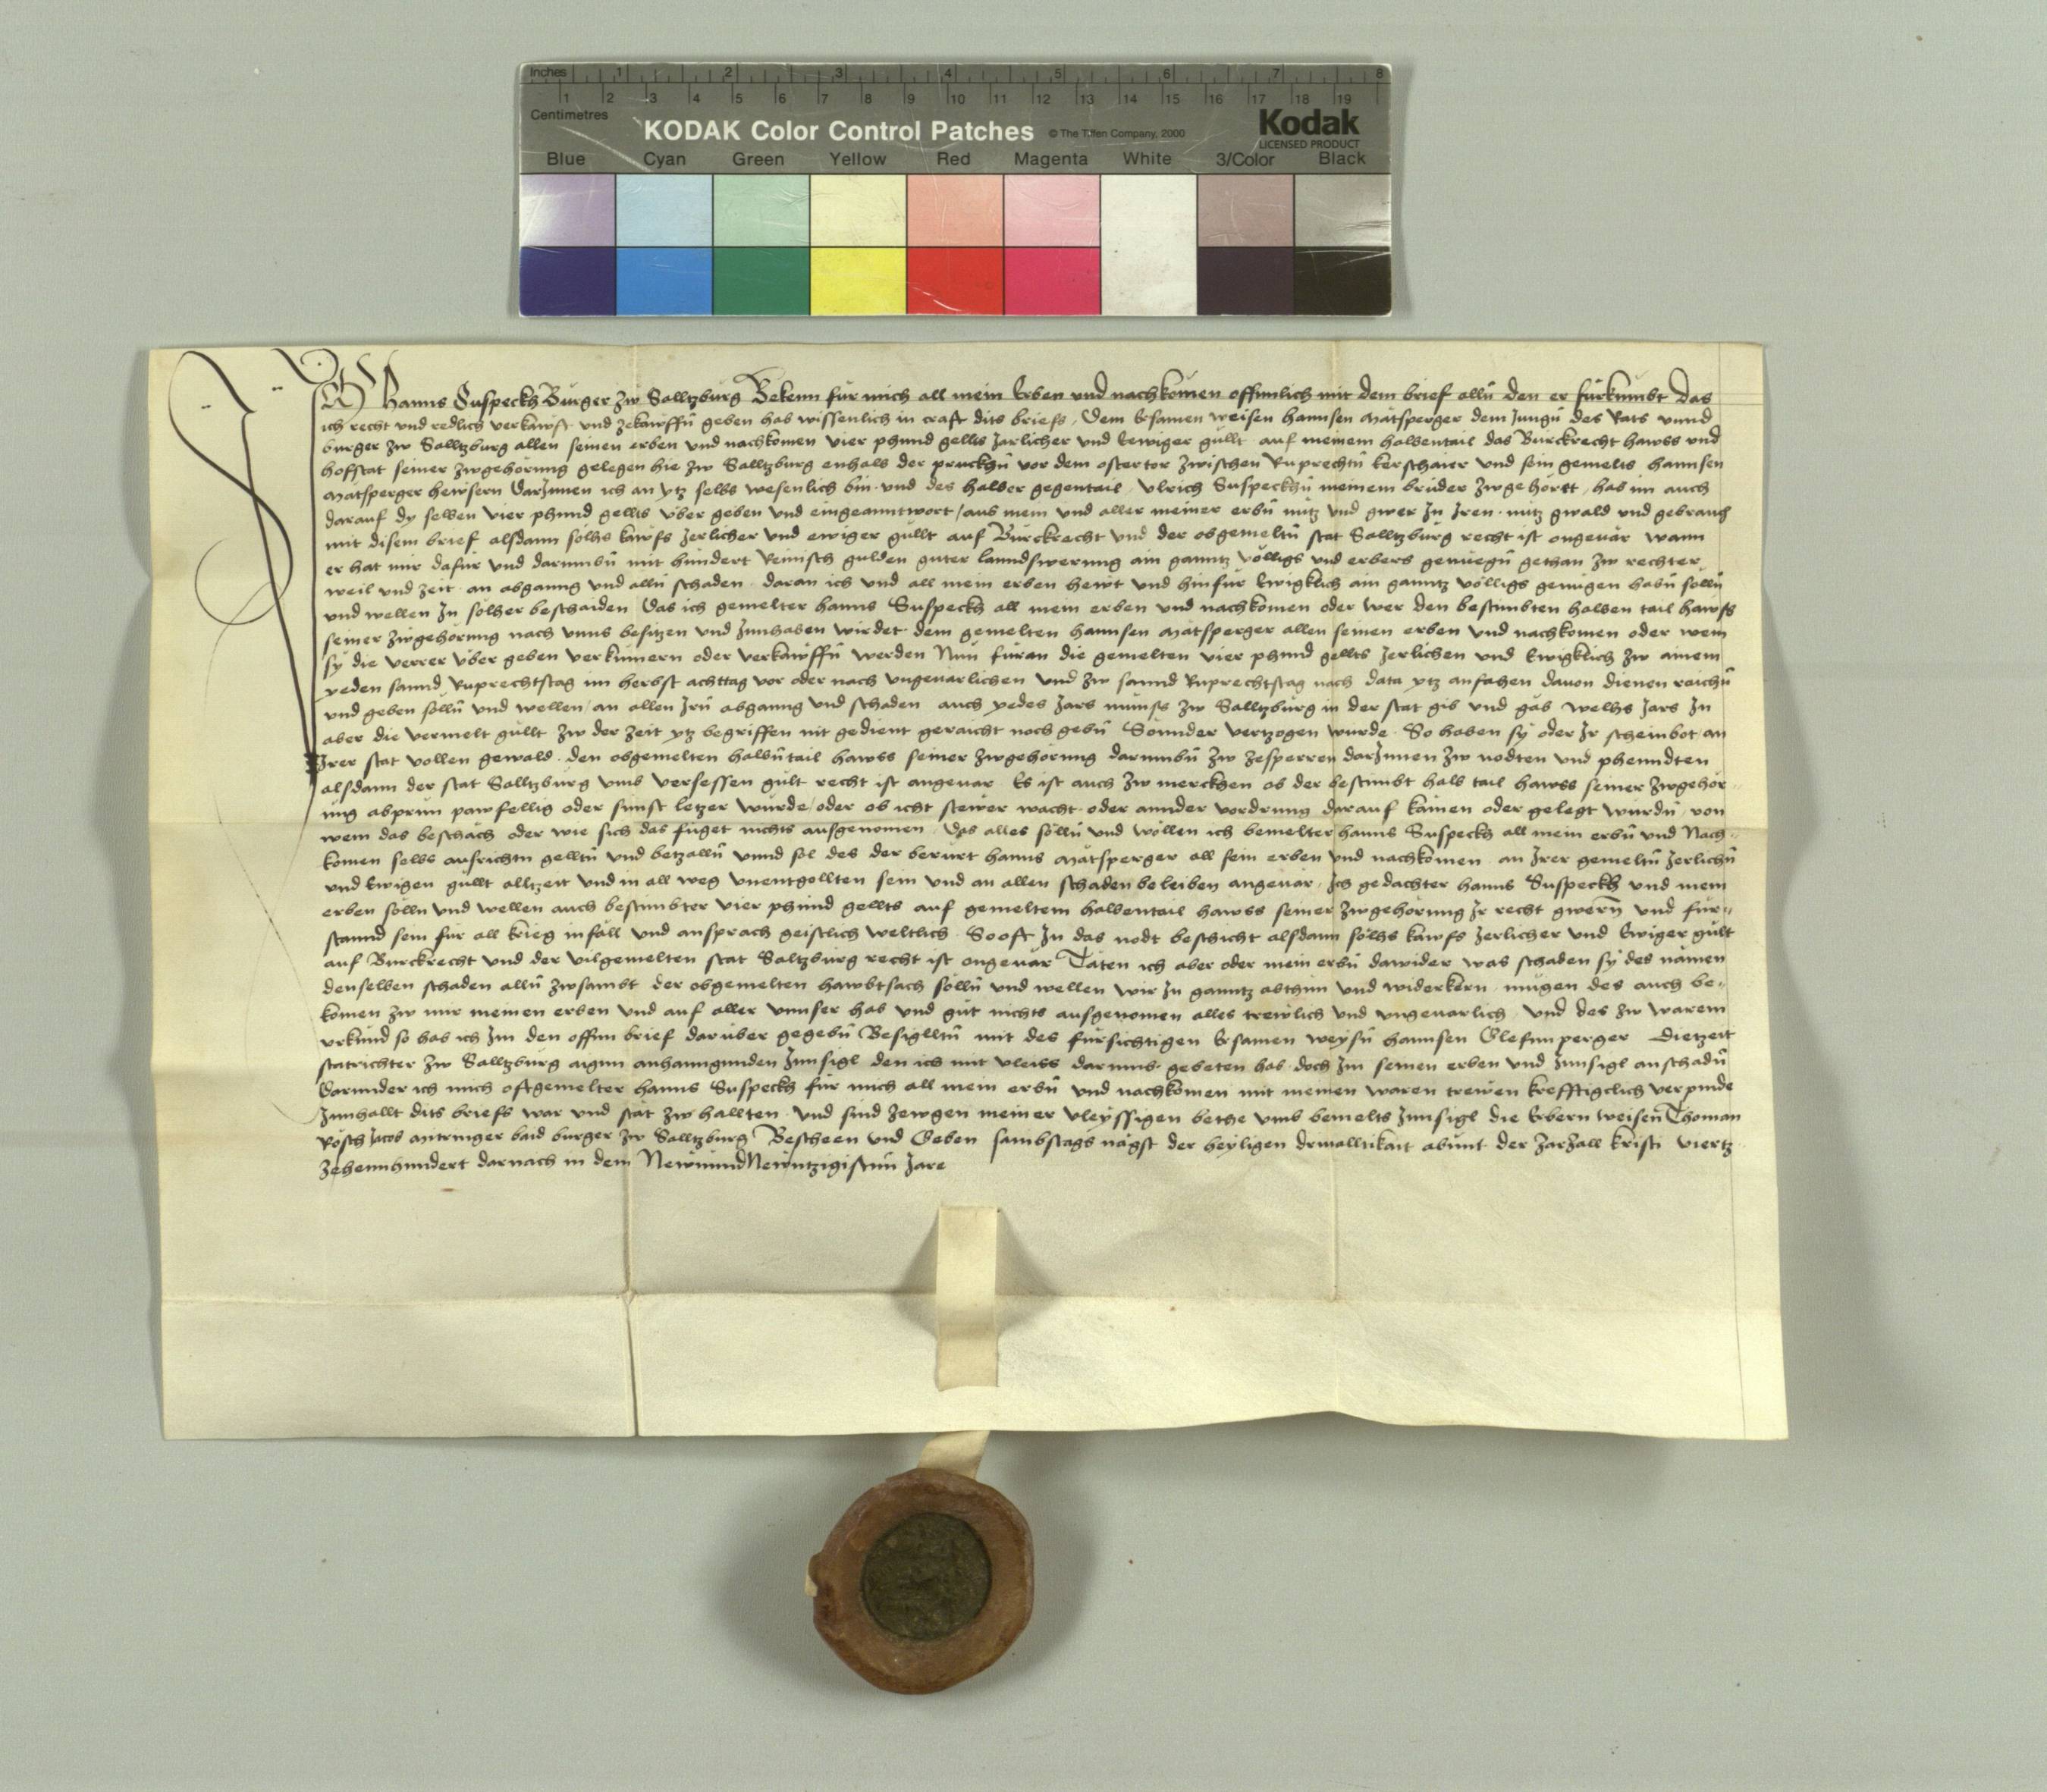 Inches 1 2 3 4 5 6 7 8
1 2 3 4 5 6 7 8 9 10 11 12 13 14 15 16 17 18 19
Centimetres
KODAK Color Control Patches © The Tiffen Company, 2000 Kodak
LICENSED PRODUCT
Blue Cyan Green Yellow Red Magenta White 3/Color Black
Ich Hanns Suspeckh Burger zw Salltzburg Bekenn für mich all mein Erben und nachkomen offnnlich mit dem brief allñ den er fürkumbt Das
ich recht und redlich verkawft und zekawffñ geben hab wissenlich in craft dits briefs, Dem Ersamen weisen hannsen Mätsperger dem Jungñ des Rats vnnd
burger zw Salltzburg allen seinen erben und nachkomen vier phund gellts Jarlicher und Eewiger güllt auf meinem halbentail das Burckrecht hawss und
hofstat seiner zwgehörung gelegen hie zw Salltzburg enhalb der pruckgñ vor dem ostertor zwischen Ruprechtñ kerschaier und sein gemelts hannsen
Mätsperger hewsern DarJnnen ich an ytz selbs wesenlich bin und des halber gegentail Vlrich Suspeckhñ meinem brüder zwgehörtt, hab im auch
darauf dy selben vier phund gellts über geben und eingeanntwort, aus mein und aller meiner erbñ nütz und gwer Jn Jren nütz gwald und gebrauch
mit disem brief alsdann sölhs kawfs Jerlicher und ewiger güllt auf Burckrecht und der obgemeltñ stat Salltzburg recht ist ongeuär wann
er hat mir dafür und darumbñ mit hundert Reinisch gulden guter lanndswerung ain ganntz völligs und erbers genüegñ gethan zw rechter
weil und zeit an abganng und allñ schaden daran ich und all mein erben hewt und hinfür Ewigklich ain ganntz völligs genügen habñ sollñ
und wellen Jn sölher beschaiden Das ich gemelter hanns Suspeckh all mein erben und nachkomen oder wer den bestimbten halben tail hawss
seiner zwgehörung nach vnns besitzen und Jnnhaben wirdet dem gemelten hannsen Mätsperger allen seinen erben und nachkomen oder wem
sy die verrer über geben verkümern oder verkawffñ werden Nun füran die gemelten vier phund gellts Jerlichen und Ewigklich zw ainem
yeden sannd Ruprechtstag im herbst achttag vor oder nach vngeuarlichen und zw sannd Ruprechtstag nach data ytz anfahen dauon dienen raichñ
und geben sollñ und wellen, an allen Jrñ abganng und schaden auch yedes Jars münss zw Salltzburg in der stat gib und gäb welhs Jars Jn
aber die vermelt güllt zw der zeit ytz begriffen nit gedient geraicht noch gebñ Sonnder vertzogen wurde So haben sy oder Jr scheinbot an
Jrer stat vollen gewald den obgemelten halbñtail hawss seiner zwgehörung darumbñ zw zesperren darJnnen zw nodten und phenndten
alsdann der stat Salltzburg vmb versessen gült recht ist angeuar Es ist auch zw merckhen ob der bestimbt halb tail hawss seiner zwgehör
ung abprun pawfellig oder sunst letzer wurde, oder ob icht stewer wacht oder annder vordrung darauf kämen oder gelegt wurdñ von
wem das beschäch oder wie sich das füget nichts ausgenomen Das alles söllñ und wöllen ich bemelter hanns Suspeckh all mein erbñ und Nach-
komen selbs ausrichtn gelltñ und betzallñ vnnd sol des der berürt hanns Mätsperger all sein erben und nachkomen an Jrer gemeltñ Jerlichñ
und Ewigen güllt alltzeit und in all weg vnentgollten sein und an allen schaden beleiben angeuär, Ich gedachter hanns Suspeckh und mein
erben sölln und wellen auch bestimbter vier phund gellts auf gemeltem halbentail hawss seiner zwgehörung Jr recht gwern und für-
stannd sein für all krieg infäll und ansprach geistlich weltlich Sooft Jn das nodt beschicht alsdann sölhs kawfs Jerlicher und Ewiger gült
auf Burckrecht und der vilgemelten stat Saltzburg recht ist ongeuar Täten ich aber oder mein erbñ dawider was schaden sy des nämen
denselben schaden allñ zwsambt der obgemelten hawbtsach söllñ und wellen wir Jn ganntz abthun und widerkern mügen des auch be-
komen zw mir meinen erben und auf aller vnnser hab und güt nichts ausgenomen alles trewlich und vngeuarlich, und des zw warem
vrkund so hab ich Jm den offnn brief darüber gegebñ Besiglltñ mit des fürsichtigen Ersamen weysñ hannsen Glefnnperger Dietzeit
statrichter zw Salltzburg aignn anhanngunden Jnnsigl den ich mit vleiss darumb gebeten hab doch Jm seinen erben und Jnnsigl anschadñ
darunder ich mich oftgemelter hanns Suspeckh für mich all mein erbñ und nachkomen mit meinen waren trewen krefftigclich verpinde
Jnnhallt dits briefs war und stät zw hallten und sind zewgen meiner vleyssigen bethe vmb bemelts Jnnsigl die Erbern weisen Thoman
Rösch Jacob antringer baid burger zw Salltzburg Bescheen und Geben sambstags nägst der heyligen drivalltikait abunt der Jarzall kristi viertz
zehennhundert darnach in dem NewnundNewntzigistnn Jare